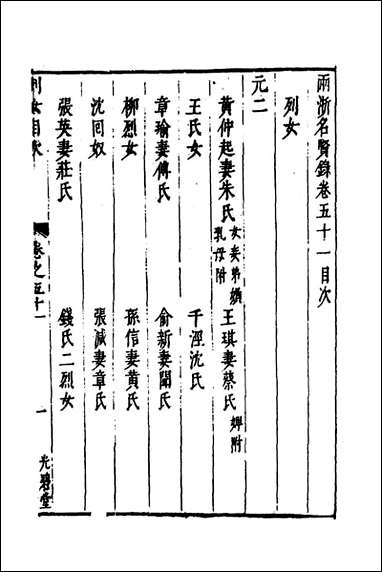 兩浙名賢錄卷五十一目次
列女
元二
黃仲起妻朱氏 女妾弟婦乳母附 王琪妻蔡氏 婢附
王氏女 千涇沈氏
章瑜妻傅氏 俞新妻聞氏
柳烈女 孫信妻黃氏
沈回奴 張減妻章氏
張英妻莊氏 錢氏二烈女
列女目次 卷之五十一 一 光碧堂